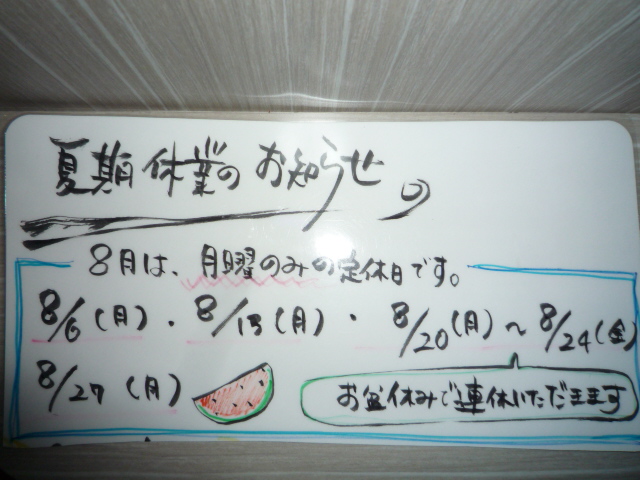 夏期休業のお知らせ
8月は、月曜のみの定休日です。
8/6(月)・8/13(月)・8/20(月)〜8/24(金)
8/27(月)
お盆休みで連休いただきます